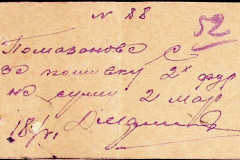 № 88
52
Помазанова С
за пошивку 2х фур
на сумму 2 мар
18/VI